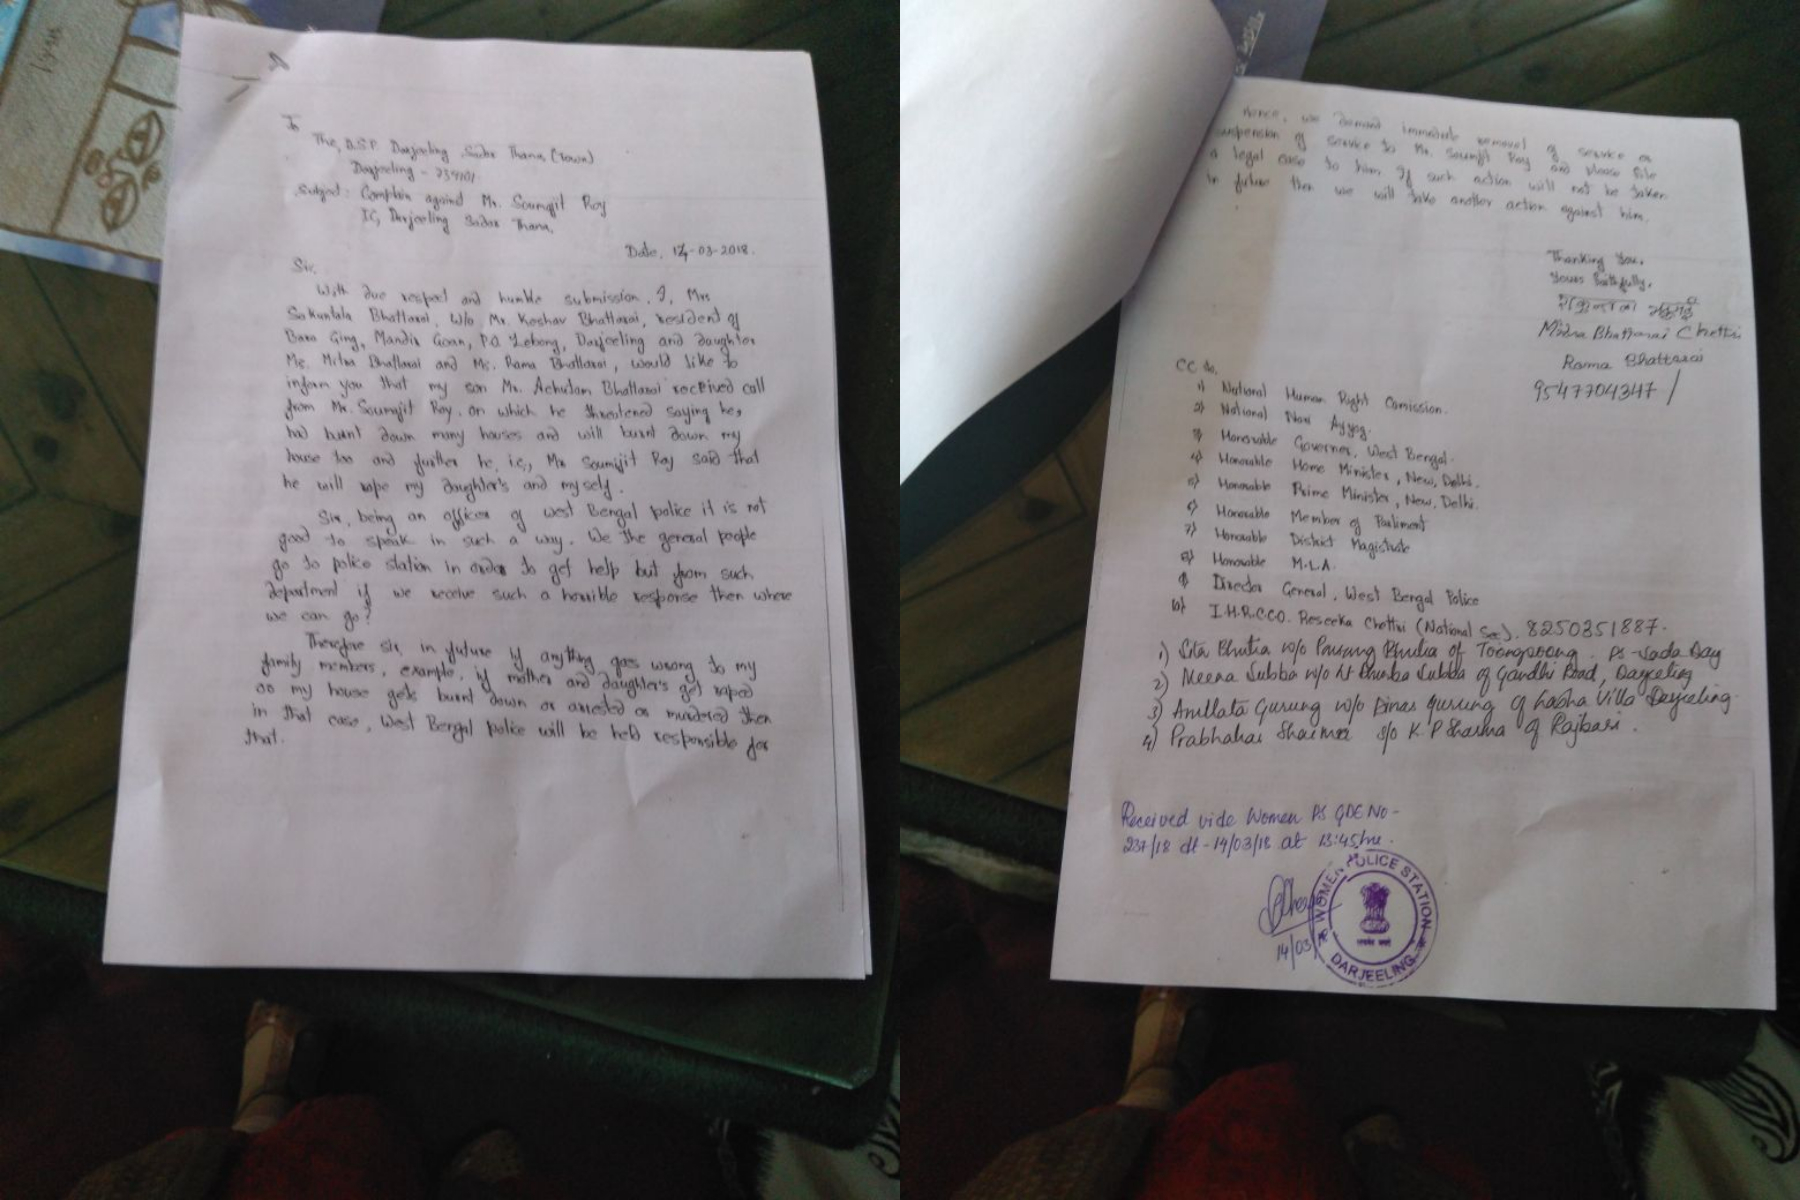 To
The, D.S.P. Darjeeling Sadar Thana (Town)
Darjeeling - 734101
Subject: Complain against Mr. Soumyjit Roy
IC, Darjeeling Sadar Thana,
Date, 14-03-2018.
Sir,
With due respect and humble submission, I, Mrs
Sakuntala Bhattarai, W/o Mr. Keshav Bhattarai, resident of
Bara Ging, Mandir Goan, P.O Lebong, Darjeeling and daughter
Ms. Mitra Bhattarai and Ms. Rama Bhattarai, would like to
inform you that my son Mr. Achutam Bhattarai received call
from Mr. Soumyjit Roy, on which he threatened saying he,
had burnt down many houses and will burnt down my
house too and further he, i.e., Mr Soumijit Roy said that
he will rape my daughter's and myself.
Sir, being an officer of west Bengal police it is not
good to speak in such a way. We the general people
go to police station in order to get help but from such
department if we receive such a horrible response then where
we can go?
Therefore sir, in future if anything goes wrong to my
family members, example, if mother and daughter's get raped
or my house gets burnt down or arrested or murdered then
in that case, West Bengal police will be held responsible for
that.
Hence, we demand immediate removal of service or
suspension of service to Mr. Soumijit Roy and please file
a legal case to him. If such action will not be taken
in future then we will take another action against him.
Thanking You,
Yours faithfully,
Mitra Bhattarai Chettri
Rama Bhattarai
9547704347/
CC to.
1) National Human Right Comission.
2) National Nari Ayyog.
3) Honorable Governer, West Bengal.
4) Honorable Home Minister, New, Delhi.
5) Honorable Prime Minister, New, Delhi.
6) Honorable Member of Parliment
7) Honorable District Magistrate
8) Honorable M.L.A.
9) Director General, West Bengal Police
10) I.H.R.C.C.O. Reseeka Chettri (National Sec). 8250351887.
1) Sita Bhutia w/o Pansang Bhutia of Toongsoong. PS - Sadar Darj
2) Meena Subba w/o Lt Bhumba Subba of Gandhi Road, Darjeeling
3) Amrlata Gurung w/o Dinas Gurung of Labha Villa Darjeeling.
4) Prabhakar Sharma s/o K.P Sharma of Rajbari.
Received vide Women PS GDE NO -
237/18 dt - 14/03/18 at 13:45 hrs.
14/03/
WOMEN POLICE STATION
DARJEELING